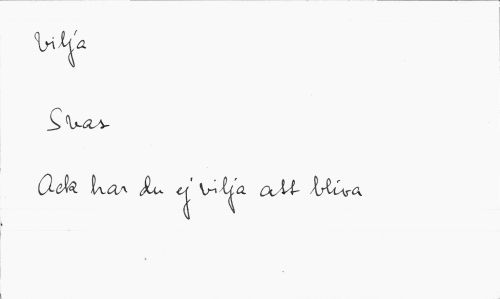 vilja
Svas
Ack har du ej vilja att bliva